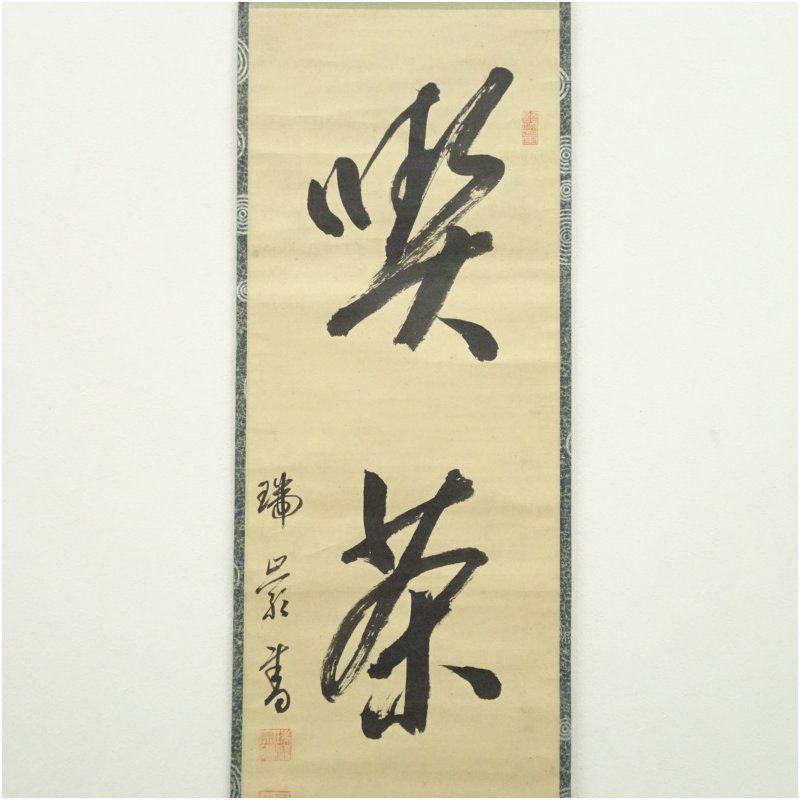 喫茶
瑞巖書